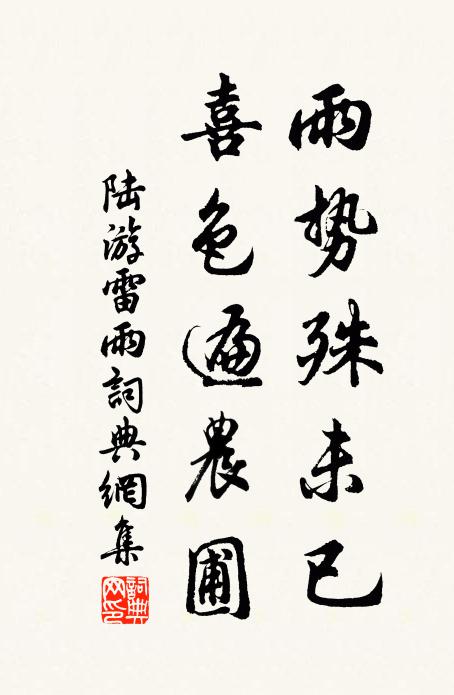 雨势殊未已
喜色遍農圃
陆游雷雨詞典網集
詞典网印